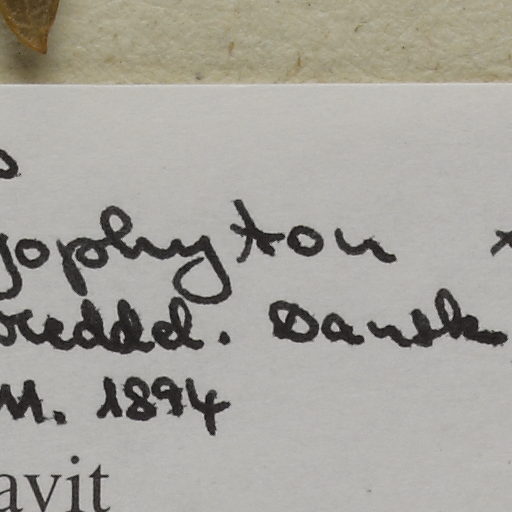 gophyton ×
reddd. Dansk
M. 1894
avit